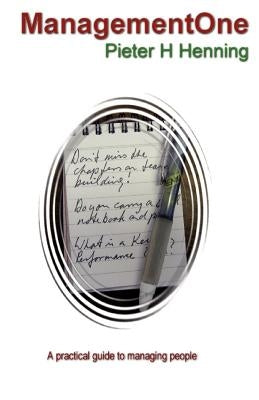 ManagementOne
Pieter H Henning
Don't miss the
chapters on team
building!
Do you carry a
notebook and
What is a Key
Performance
A practical guide to managing people